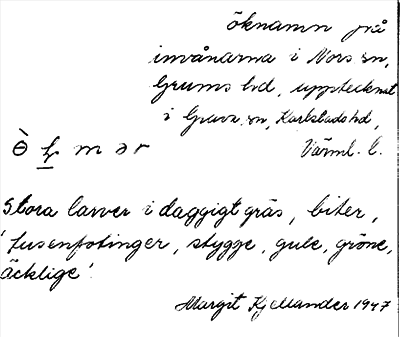 öknamn på
invånarna i Nors sn,
Grums hd, upptecknat
i Grava sn, Karlstads hd,
Värml. l.
m ə r
stora larver i daggigt gräs, biter,
'tusenfotingar, stygge, gule, gröne,
äcklige'.
Margit Kjellander 1947